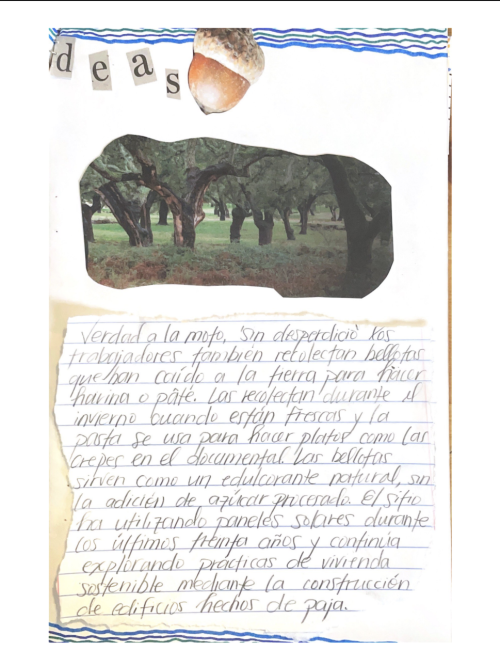 deas
Verdad a la moto, sin desperdicio Los
trabajadores también recolectan bellotas
que han caído a la tierra para hacer
harina o pâté. Las recolectan durante el
invierno cuando están frescas y la
pasta se usa para hacer platos como las
crepes en el documental. Las bellotas
sirven como un edulcorante natural, sin
la adición de azúcar procesado. El sitio
ha utilizando paneles solares durante
los últimos treinta años y continúa
explorando prácticas de vivienda
sostenible mediante la construcción
de edificios hechos de paja.